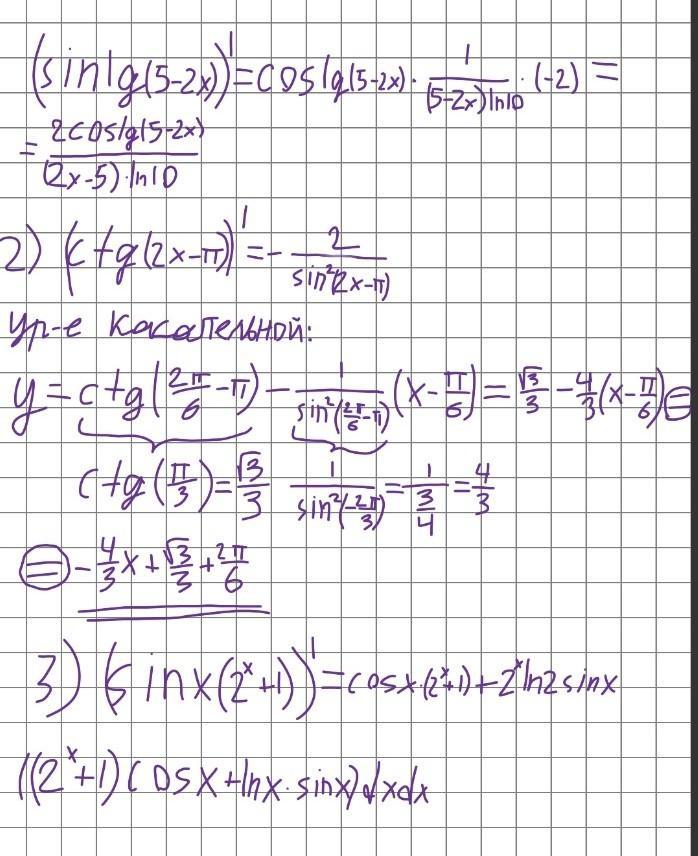 (sinlg(5-2x))' = coslg(5-2x) · 1/((5-2x)ln10) · (-2) =
= 2coslg(5-2x)/((2x-5)·ln10)
2) (ctg(2x-π))' = - 2/sin²(2x-π)
Ур-е касательной:
y = ctg(2π/6 - π) - 1/sin²(2π/6 - π) (x - π/6) = √3/3 - 4/3(x - π/6) =
ctg(π/3) = √3/3 1/sin²(-2π/3) = 1/(3/4) = 4/3
= - 4/3 x + √3/3 + 2π/6
3) (sinx(2ˣ+1))' = cosx·(2ˣ+1) + 2ˣln2sinx
((2ˣ+1)cosx + lnx·sinx)dxdx